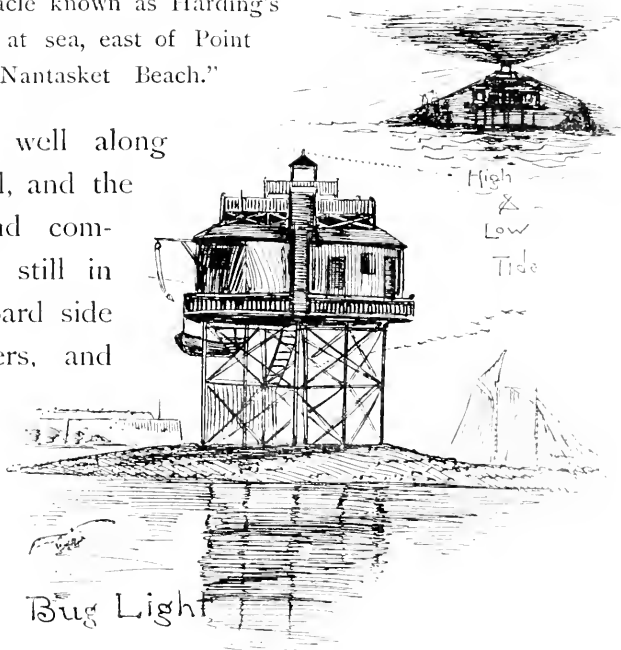 acle known as Harding's
at sea, east of Point
Nantasket Beach.”
well along
l, and the
nd com-
still in
oard side
ers, and
High
&
Low
Tide
Bug Light